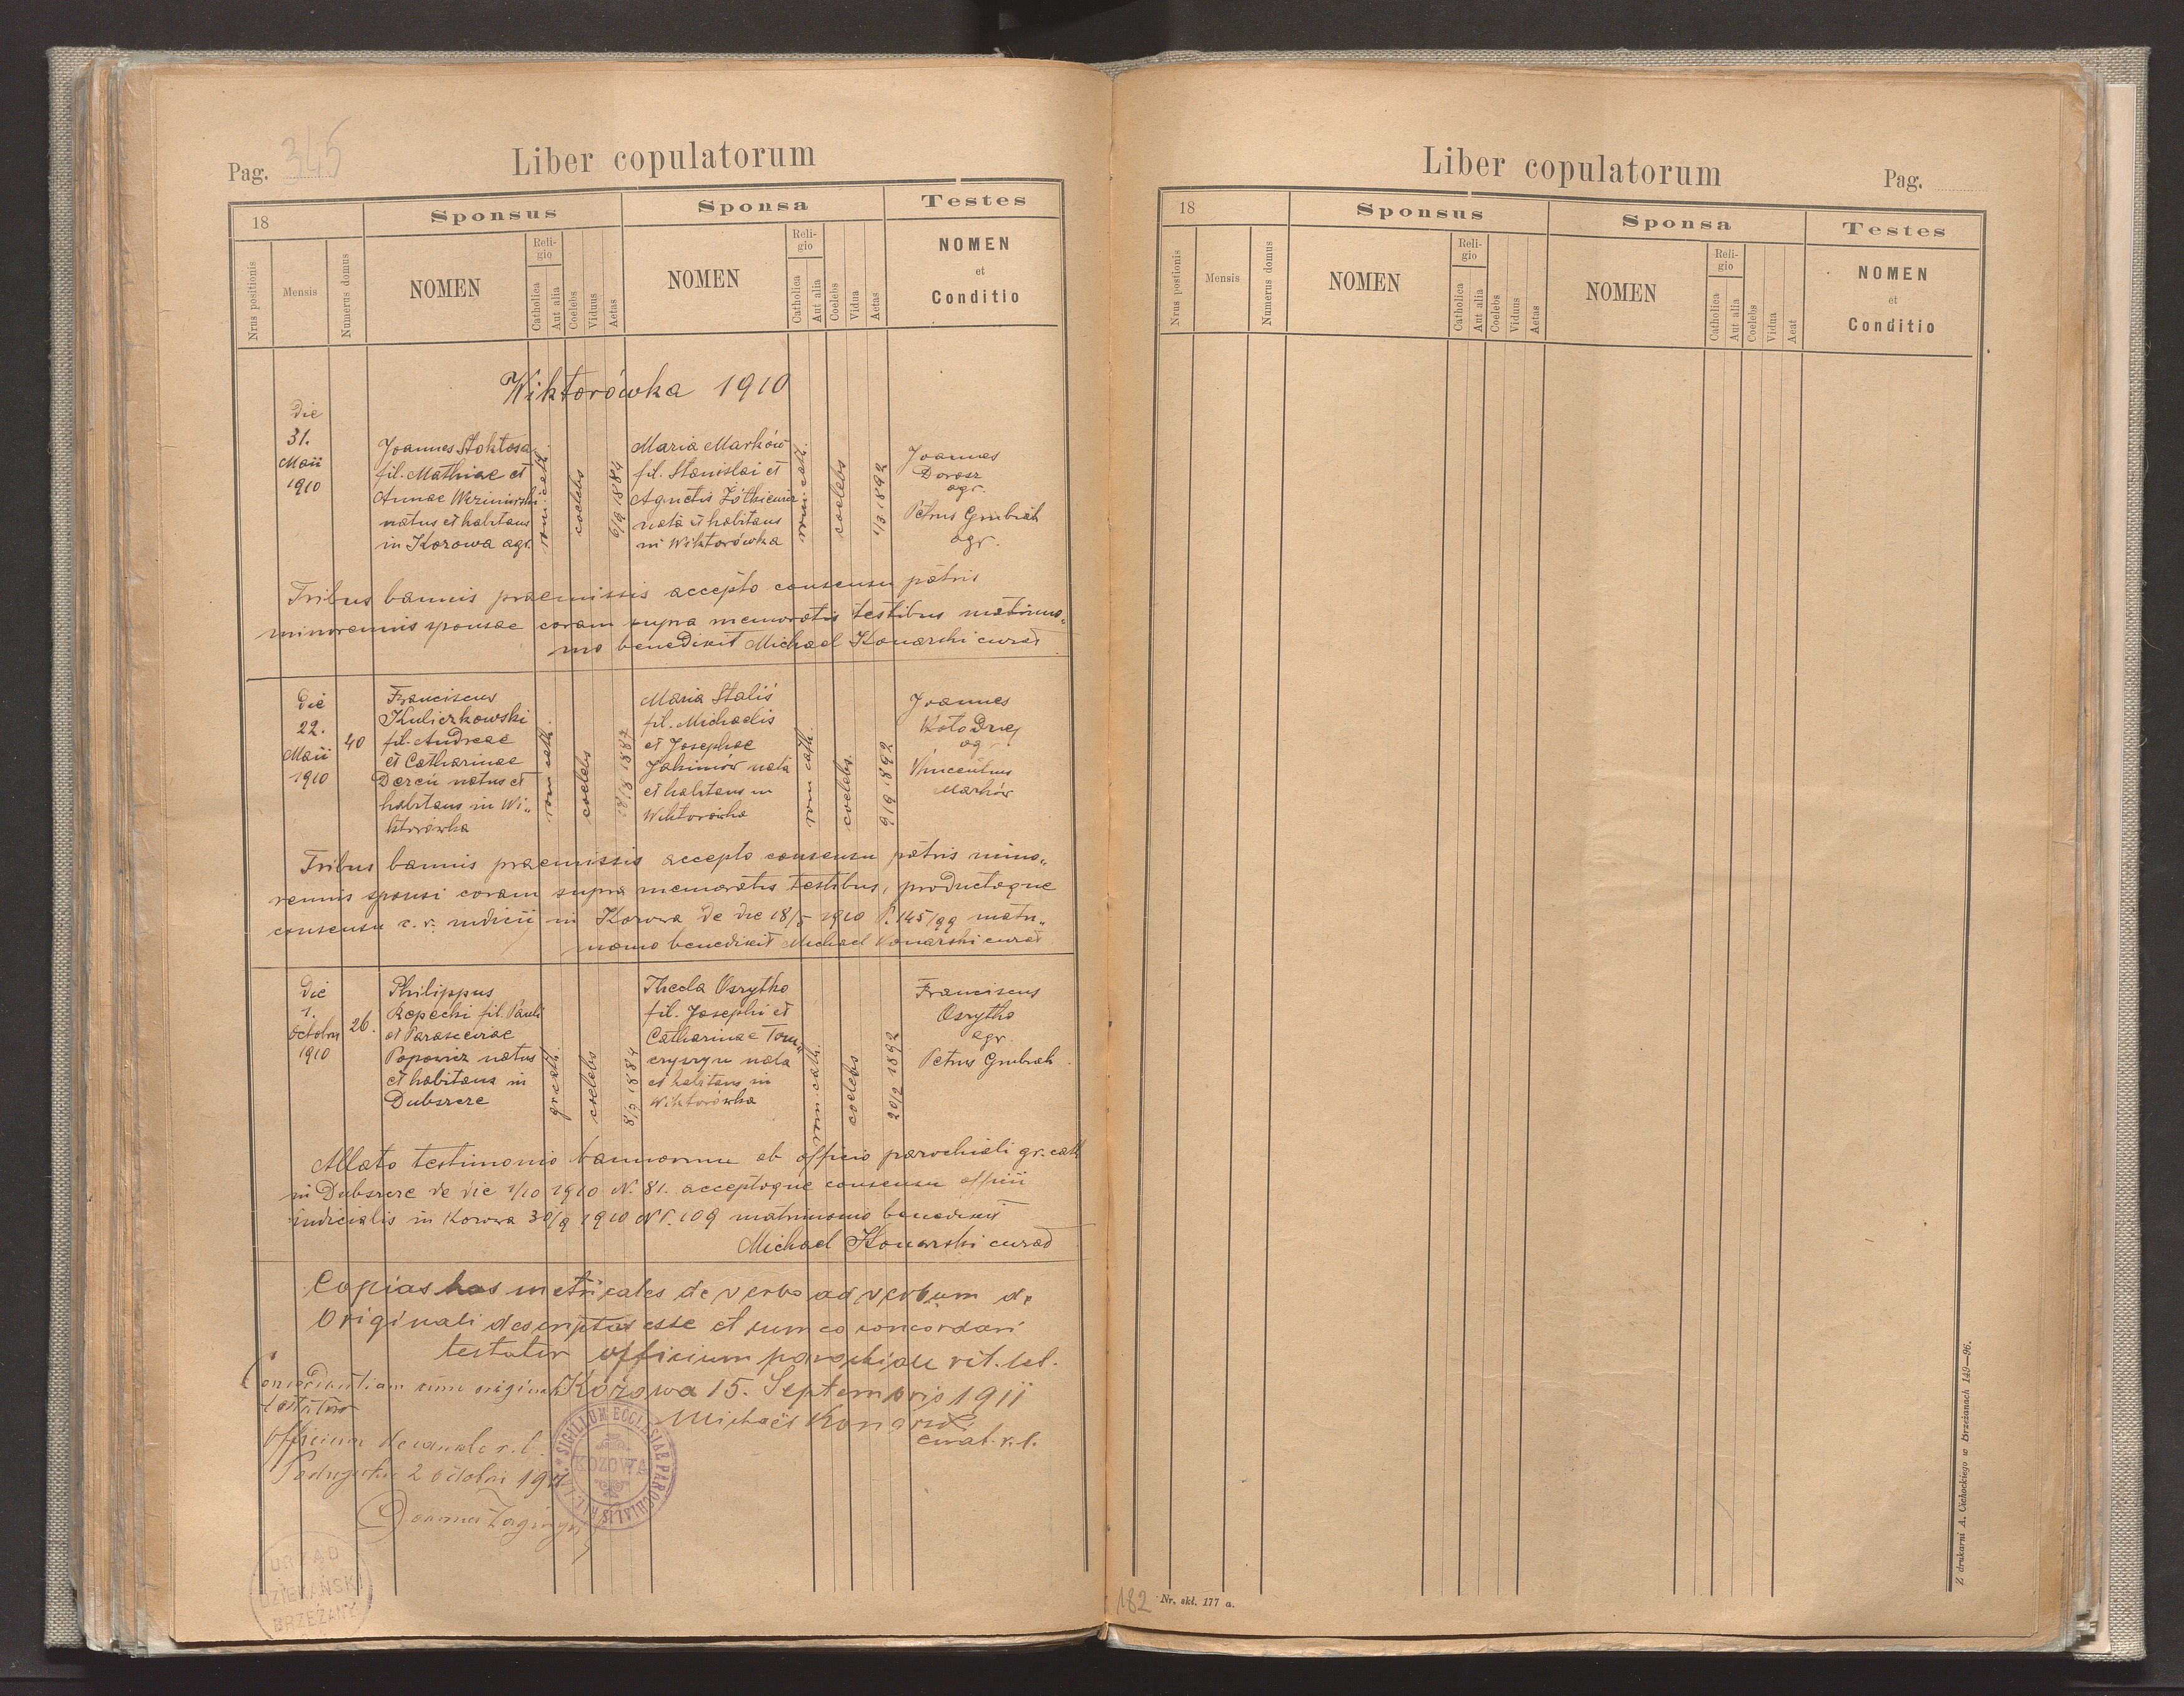 Pag. 345
Liber copulatorum
18
Sponsus
Sponsa
Testes
Nrus positionis
Mensis
Numerus domus
NOMEN
Religio
Catholica
Aut alia
Coelebs
Viduus
Aetas
NOMEN
Religio
Catholica
Aut alia
Coelebs
Vidua
Aetas
NOMEN
et
Conditio
Wiktorówka 1910
Die
31.
Maii
1910
Joannes Stokłosa
fil. Mathiae et
Annae
natus et habitans
in Kozowa agr.
rom. cath.
coelebs
6/9 1884
Maria Marków
fil. Stanislai et
Agnetis Żółkiewicz
nata et habitans
in Wiktorówka
rom. cath.
coelebs
1/3 1892
Joannes
Dorosz
agr.
Petrus Grubiak
agr.
Tribus bannis praemissis accepto consensu patris
minorennis sponsae coram supra memoratis testibus matrimo„
nio benedixit Michael Konarski curat
Die
22.
Maii
1910
40
Franciscus
Kuliczkowski
fil. Andreae
et Catharinae
Dereń natus et
habitans in Wi„
ktorówka
rom cath.
coelebs
1887
Maria Staliś
fil. Michaelis
et Josephae
Jakimów nata
et habitans in
Wiktorówka
rom cath
coelebs.
9/9 1892
Joannes
Kołodziej
ag
Vincentius
Marków
Tribus bannis praemissis accepto consensu patris mino„
rennis sponsi coram supra memoratis testibus, productoque
consensu c. r. iudicii in Kozowa de die 18/5 1910 P. 145/99 matri„
monio benedixit Michael Konarski curat
Die
1.
Octobris
1910
26.
Philippus
Kopecki fil. Pauli
et Parasceviae
Popowicz natus
et habitans in
Dubszcze
gr. cath.
coelebs
1884
Thecla Osrytko
fil. Josephi et
Catharinae Tom„
czyszyn nata
et habitans in
Wiktorówka
rom. cath.
coelebs
20/2 1892
Franciscus
Osrytko
agr
Petrus Grubiak
Allato testimonio bannorum ab officio parochiali gr. cath
in Dubszcze de die 1/10 1910 N. 81. acceptoque consensu officii
iudicialis in Kozowa 30/9 1910 N P. 109 matrimonio benedixit
Michael Konarski curat
Copias has metricales de verbo ad verbum de
Originali descriptas esse et cum eo concordari
testatur officium parochiale rit. lat.
Kozowa 15. Septembris 1911
Michael Konarski
curat. r. l.
Concordantiam cum originali
testatur
Officium decanale r. l.
2 octobris 1911
SIGILLUM ECCLESIAE PAROCHIALIS RIT. LAT.
KOZOWA
URZĄD
DZIEKAŃSKI
BRZEŻANY
Liber copulatorum
Pag.
18
Sponsus
Sponsa
Testes
Nrus postionis
Mensis
Numerus domus
NOMEN
Religio
Catholica
Aut alia
Coelebs
Viduus
Aetas
NOMEN
Religio
Catholica
Aut alia
Coelebs
Vidua
Aeat
NOMEN
et
Conditio
182
Nr. skł. 177 a.
Z drukarni A. Cichockiego w Brzeżanach 149—96.